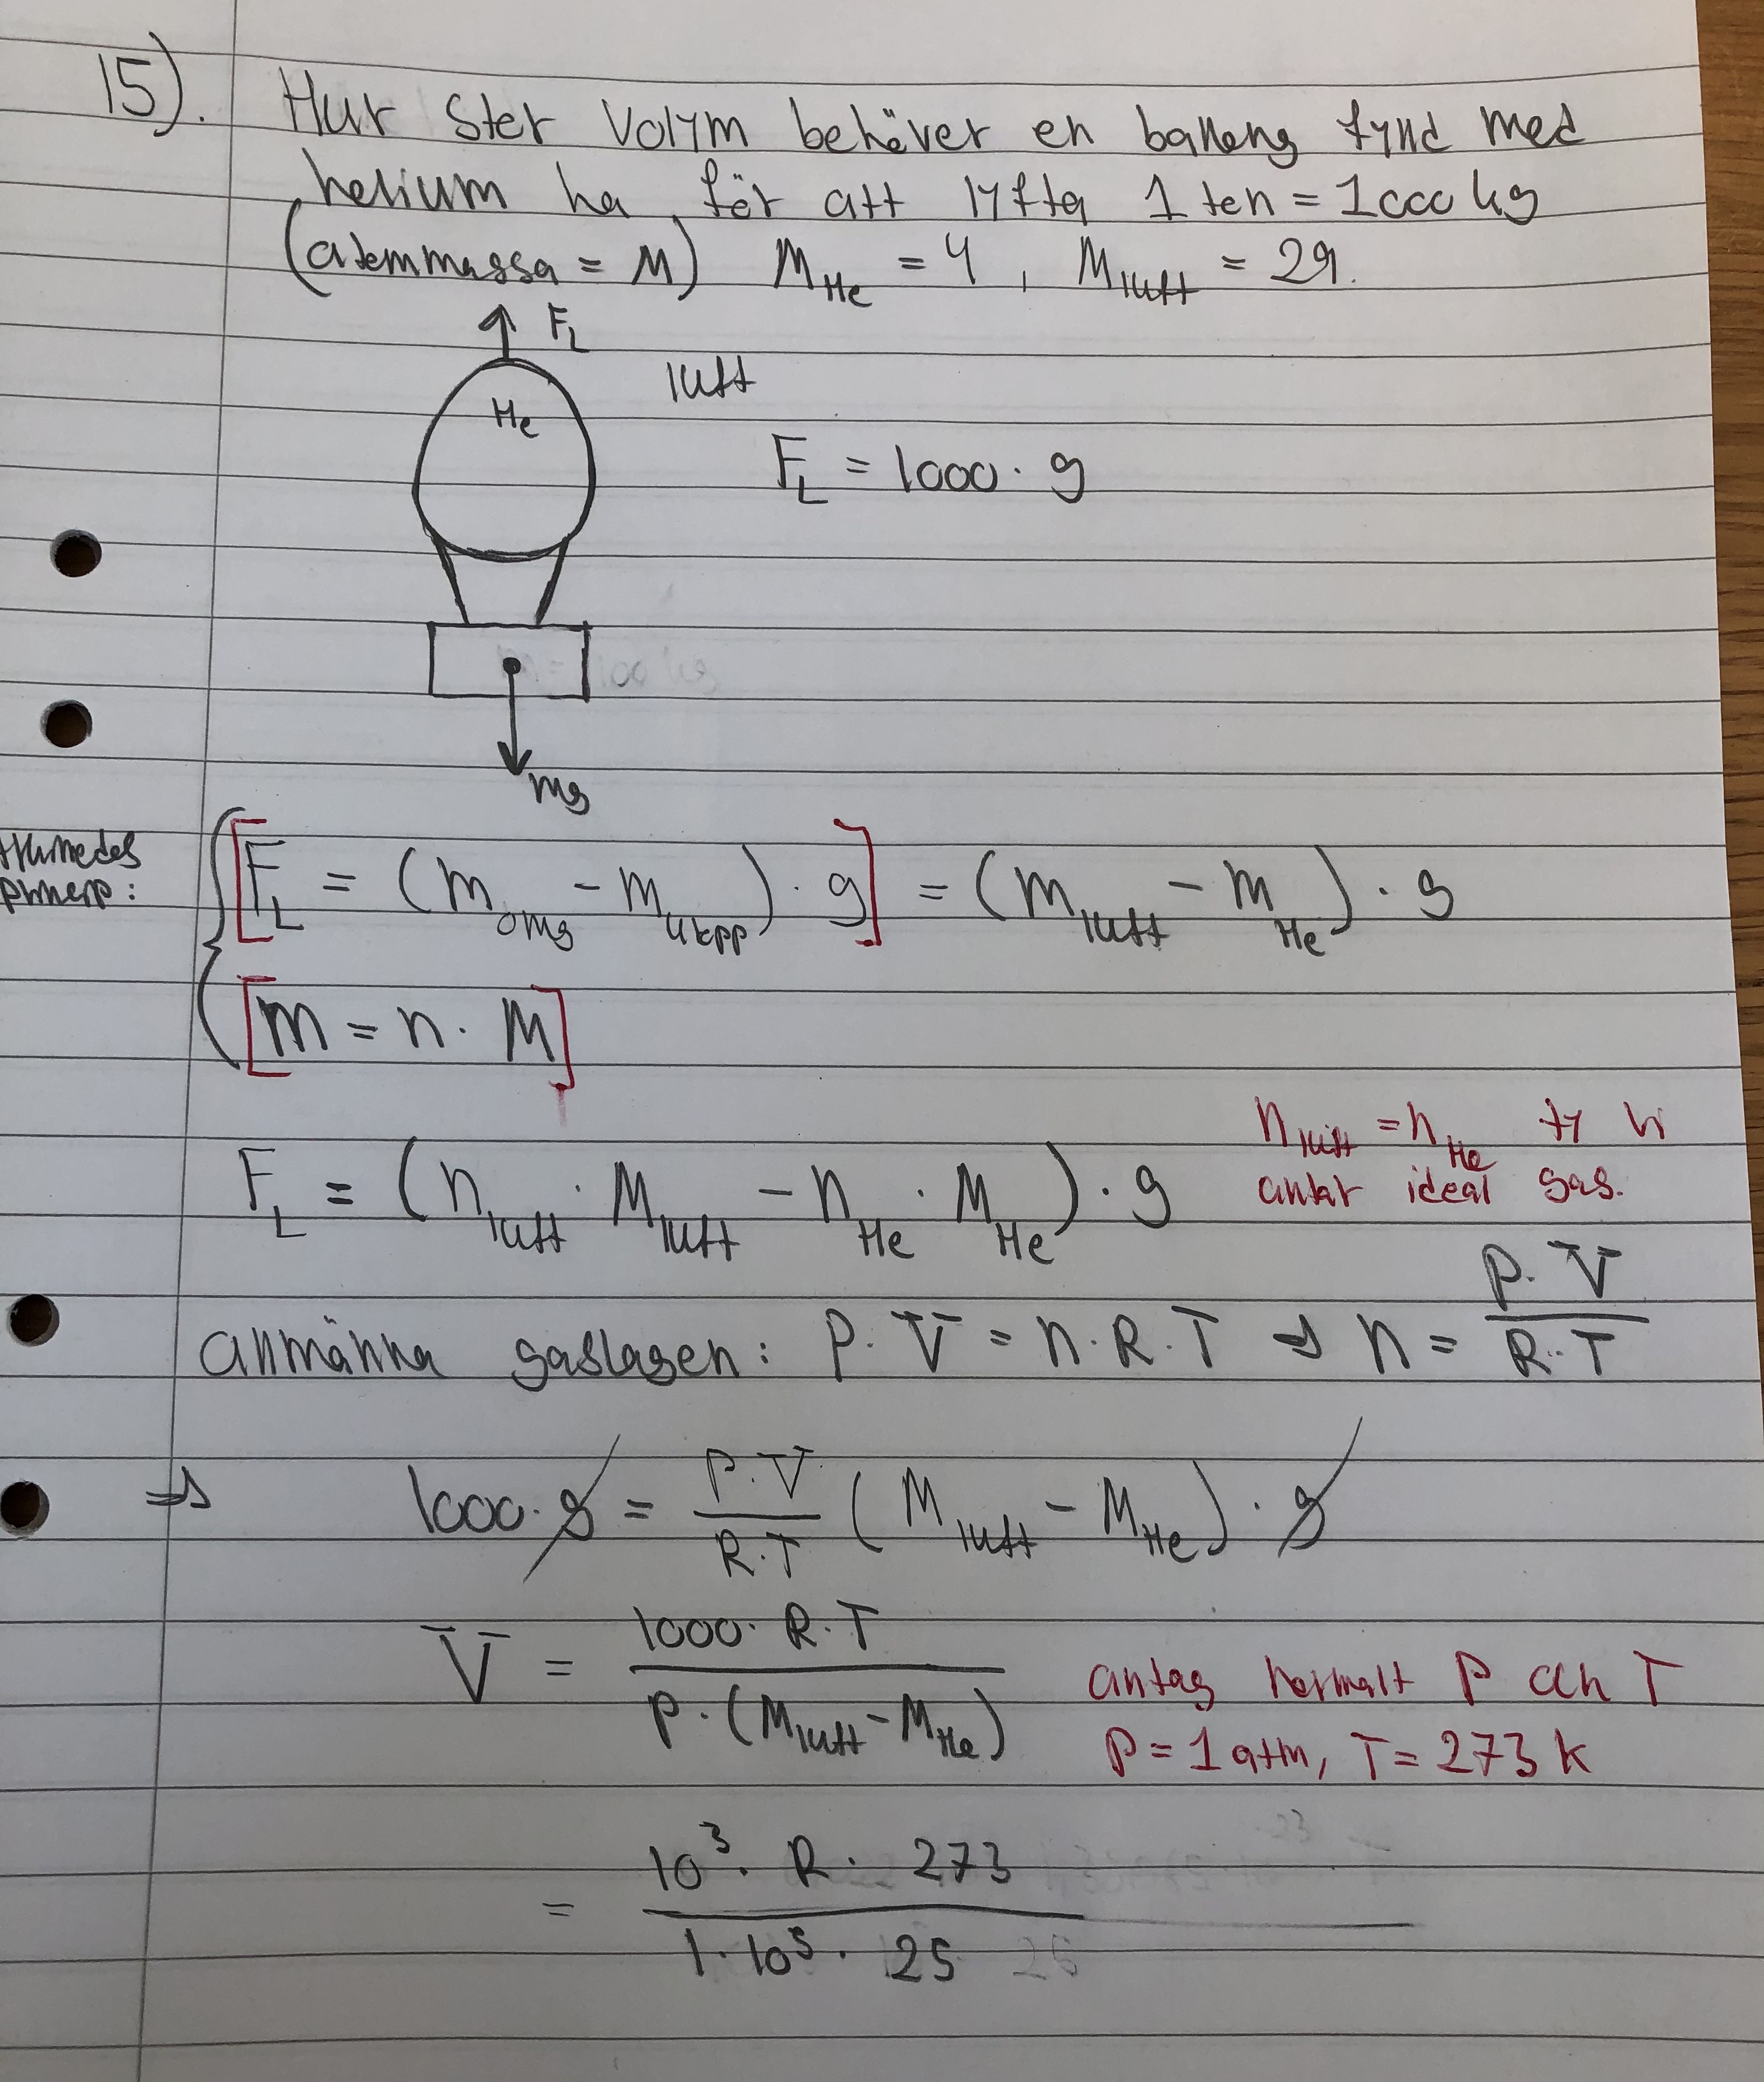 15). Hur stor volym behöver en ballong fylld med
helium ha för att lyfta 1 ton = 1000 kg
(atommassa = M) M_He = 4, M_luft = 29.
F_L
luft
He
F_L = 1000 · g
mg
Arkimedes
princip:
[F_L = (m_omg - m_kropp) · g] = (m_luft - m_He) · g
[m = n · M]
n_luft = n_He ty vi
antar ideal gas.
F_L = (n_luft · M_luft - n_He · M_He) · g
allmänna gaslagen: P · V = n · R · T ⇒ n = P · V / R · T
⇒ 1000 · g = P · V / R · T (M_luft - M_He) · g
V = 1000 · R · T / P · (M_luft - M_He)
antag normalt P och T
P = 1 atm, T = 273 K
= 10^3 · R · 273 / 1 · 10^5 · 25